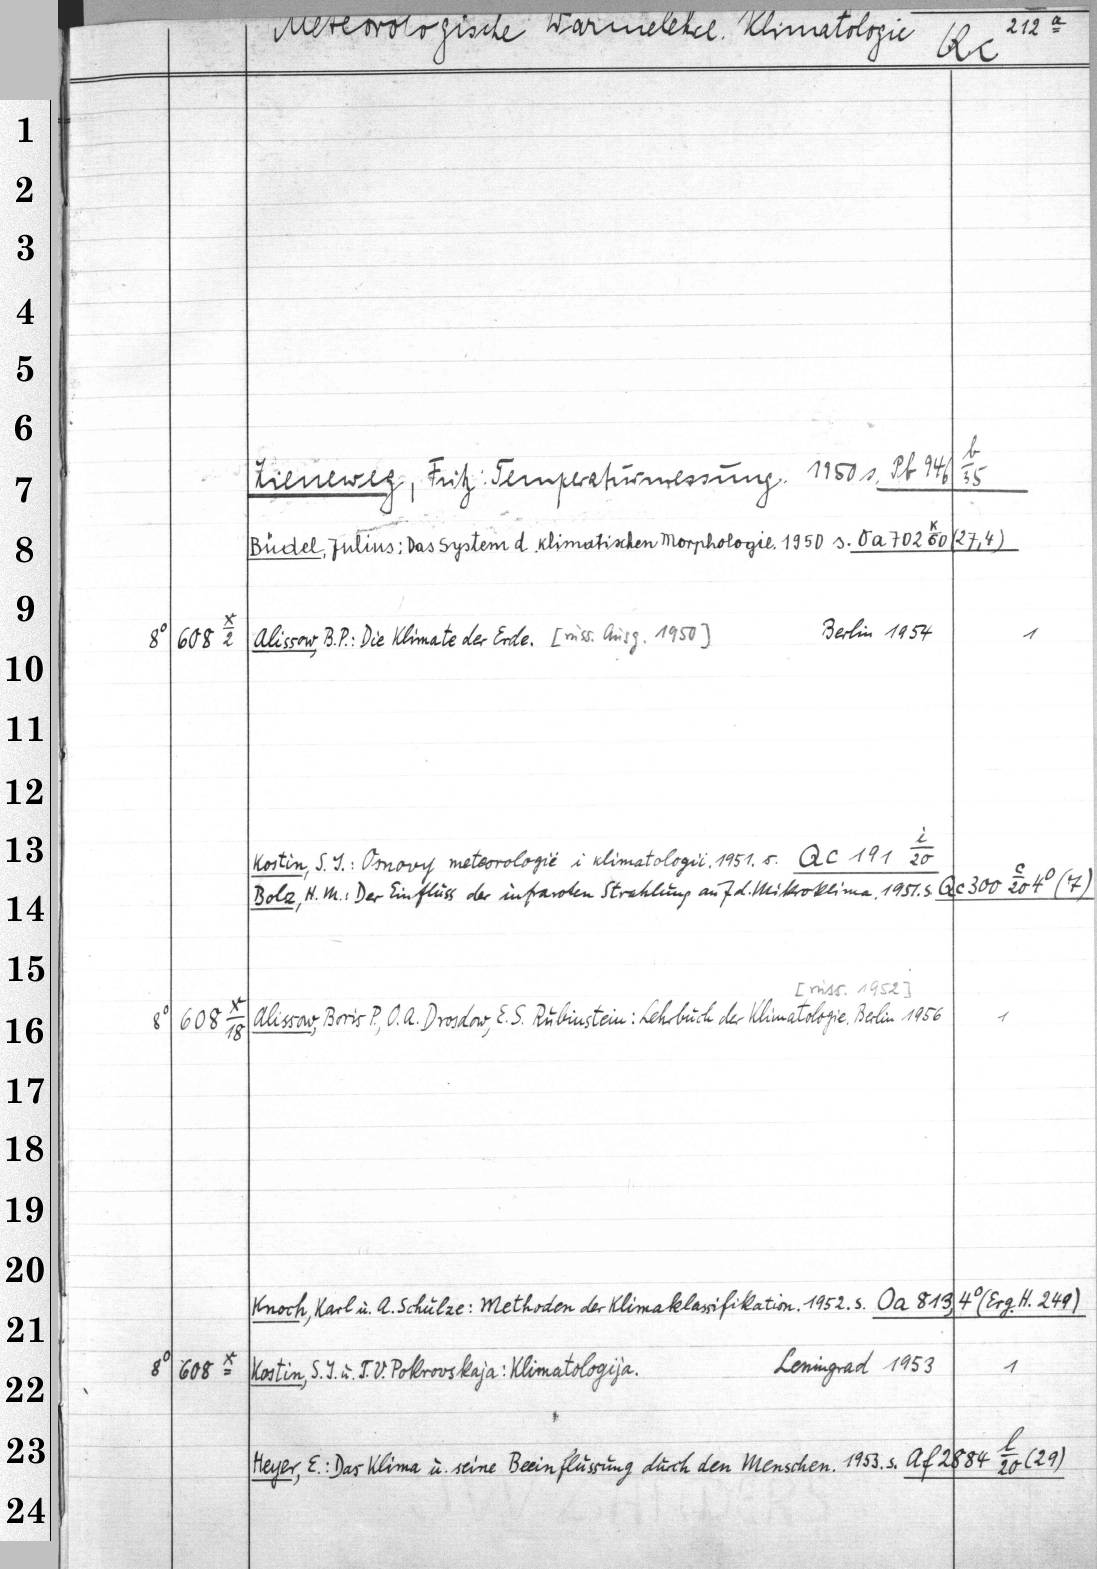 Meteorologische Wärmelehre. Klimatologie Qc 212 a
1
2
3
4
5
6
7 Lieneweg, Fritz: Temperaturmessung. 1950 s. Pb 946 b/35
8 Büdel, Julius: Das System d. klimatischen Morphologie. 1950 s. Oa 702 k/60 (27,4)
9
8° 608 x/2 Alissow, B.P.: Die Klimate der Erde. [russ. Ausg. 1950] Berlin 1954 1
10
11
12
13 Kostin, S. I.: Osnovy meteorologii i klimatologii. 1951. s. Qc 191 i/20
14 Bolz, H. M.: Der Einfluss der infraroten Strahlung auf d. Mikroklima. 1951. s. Qc 300 c/20 4° (7)
15
[russ. 1952]
16 8° 608 x/18 Alissow, Boris P., O. A. Drosdow, E. S. Rubinstein: Lehrbuch der Klimatologie. Berlin 1956 1
17
18
19
20
Knoch, Karl u. A. Schulze: Methoden der Klimaklassifikation. 1952. s. Oa 813, 4° (Erg. H. 249)
21
22 8° 608 x Kostin, S. I. u. T. V. Pokrovskaja: Klimatologija. Leningrad 1953 1
23 Heyer, E.: Das Klima u. seine Beeinflussung durch den Menschen. 1953. s. Af 2884 l/20 (29)
24